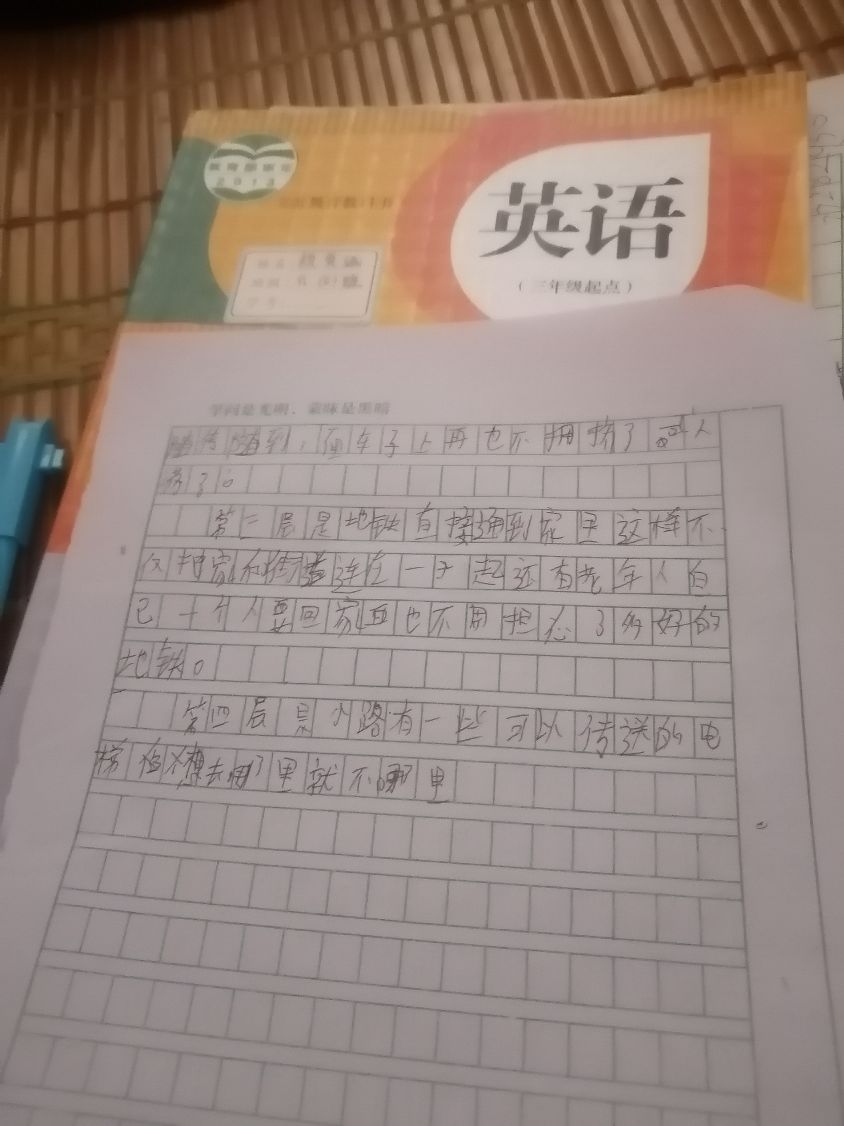 英语
（三年级起点）
教育部审定
2013
姓名
学问是光明，蒙昧是黑暗
随传随到，在车子上再也不拥挤了
了。
第三层是地铁直接通到家里这样不
仅把家和街道连在一于起还有老年人自
己一个人要回家且也不用担心了多好的
地铁。
第四层是小路有一些可以传送的电
梯你想去哪里就不哪里